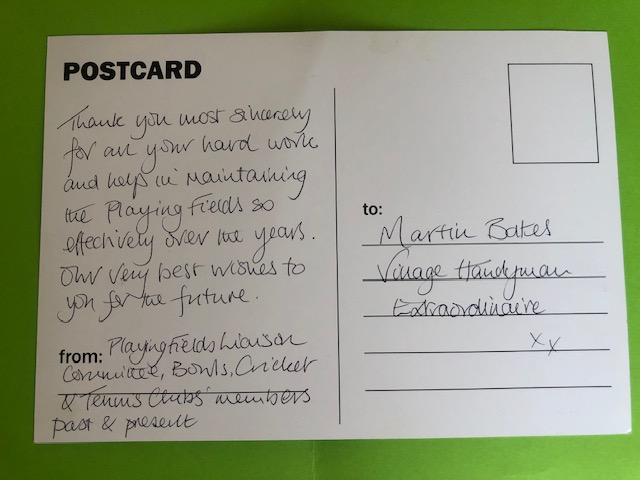 POSTCARD
Thank you most sincerely
for all your hard work
and help in maintaining
the Playing Fields so
effectively over the years.
Our very best wishes to
you for the future.
from: Playing Fields Liaison
Committee, Bowls, Cricket
& Tennis Clubs' members
past & present
to:
Martin Bates
Village Handyman
Extraordinaire
xx